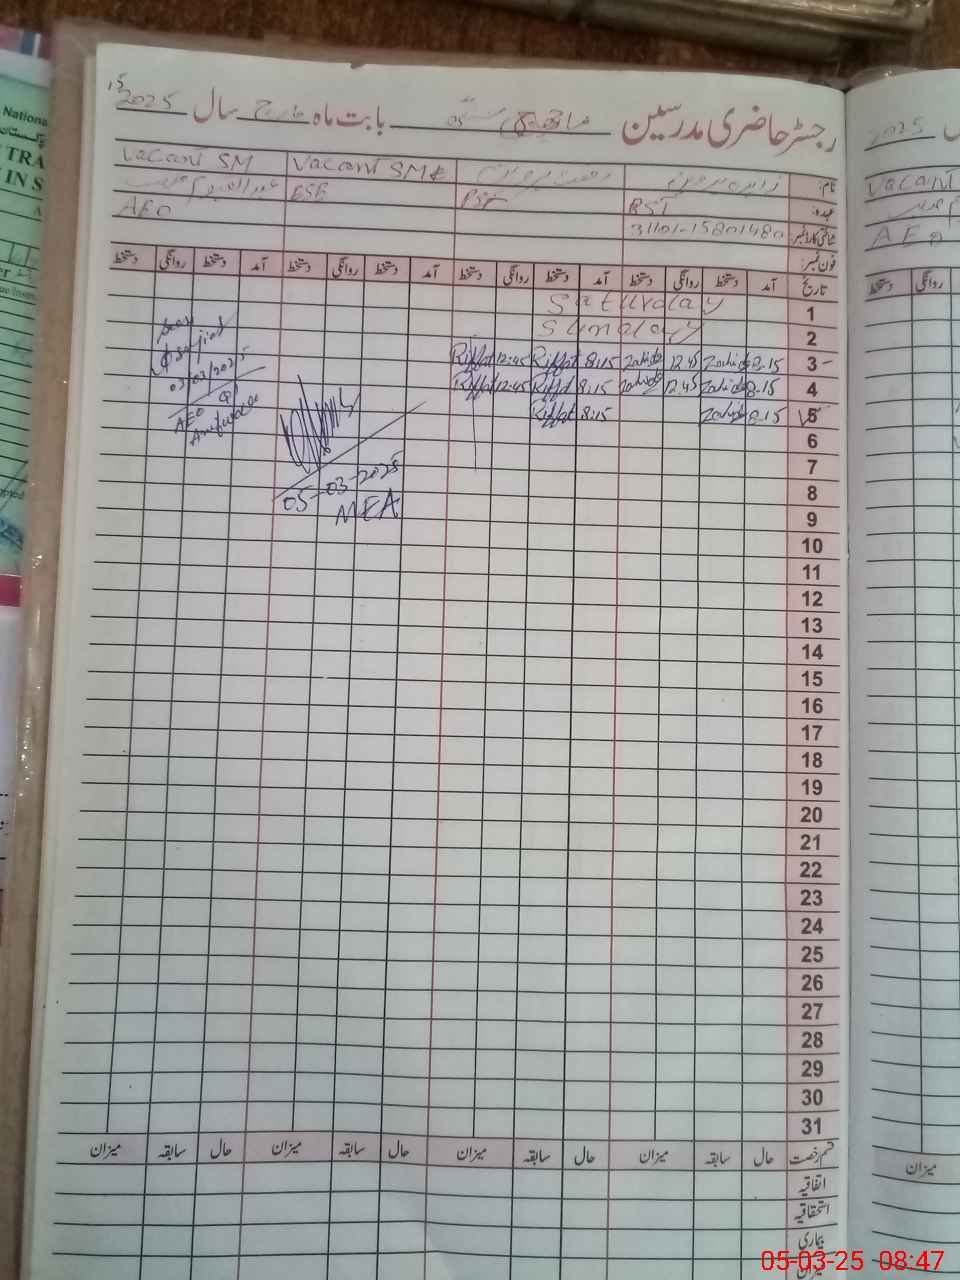 رجسٹر حاضری مدرسین بابت ماہ مارچ سال 2025
نام: زاہدہ پروین رفعت پروین Vacant SM Vacant SM
عہدہ: RST PST ESE
شناختی کارڈ نمبر: AEO
فون نمبر:
تاریخ آمد دستخط روانگی دستخط آمد دستخط روانگی دستخط آمد دستخط روانگی دستخط آمد دستخط روانگی دستخط
1 Saturday
2 Sunday
3 8.15 Zahida 12.45 Zahida 8:15 Riffat 12:45 Riffat
4 8.15 Zahida 12.45 Zahida 8:15 Riffat 12:45 Riffat
5 8.15 Zahida 8:15 Riffat
6
7
8
9
10
11
12
13
14
15
16
17
18
19
20
21
22
23
24
25
26
27
28
29
30
31
Seen
03/03/2025
AEO
05-03-2025
MEA
قسم رخصت حال سابقہ میزان حال سابقہ میزان حال سابقہ میزان حال سابقہ میزان
اتفاقیہ
استحقاقیہ
بیماری
میزان
2025
Vacant
AEO
روانگی دستخط
میزان
National
TRA
IN S
05-03-25 08:47